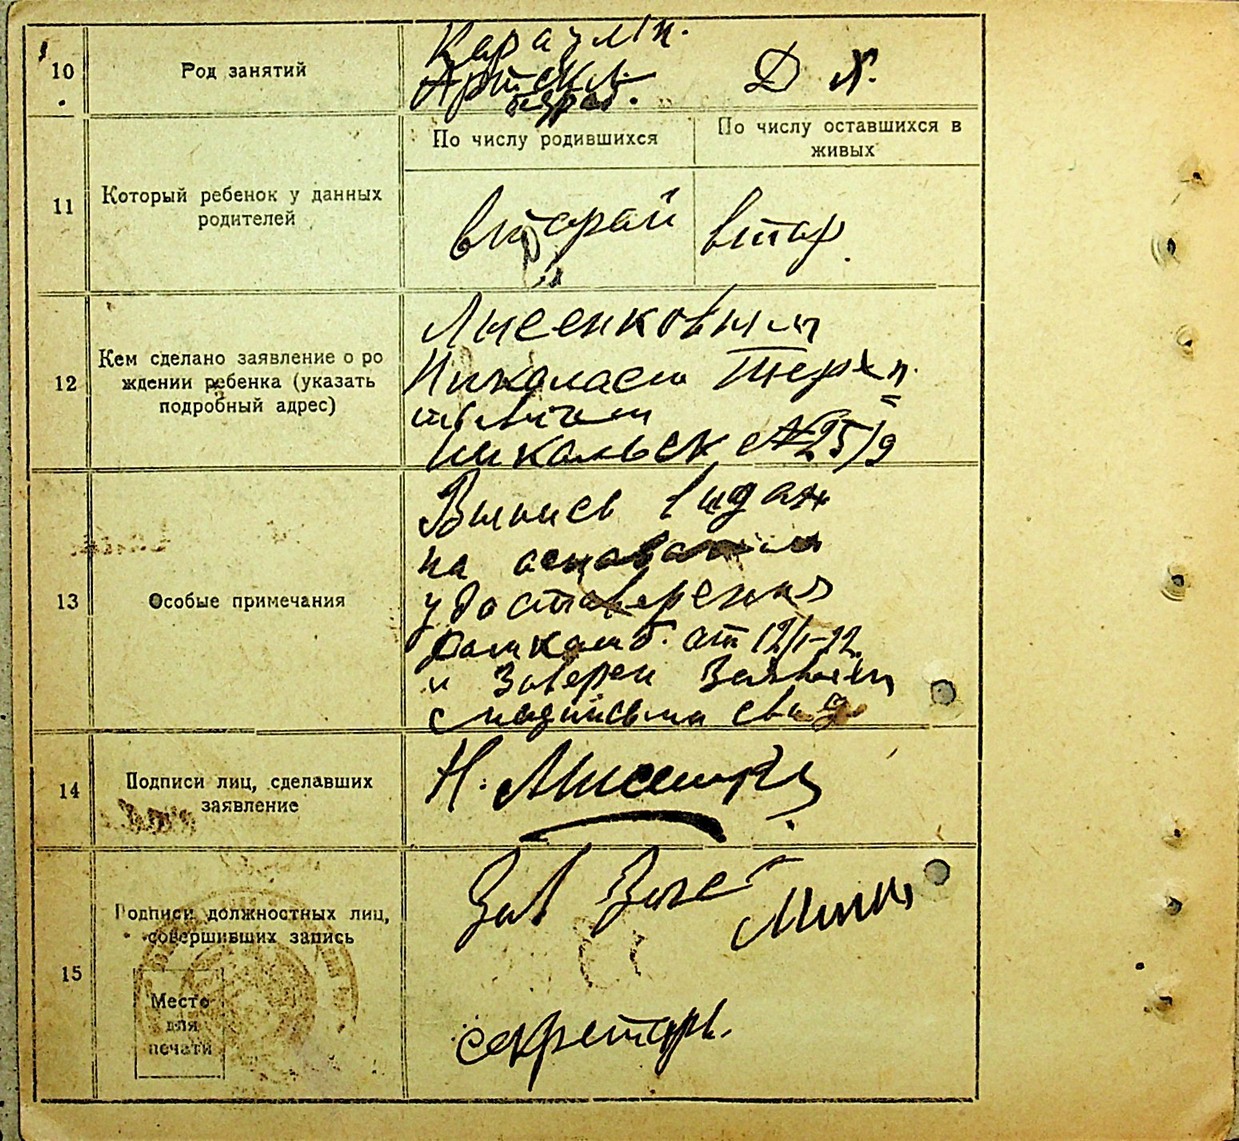 10
Род занятий
Караулн.
Артскл.
Д Х.
11
Который ребенок у данных
родителей
По числу родившихся
По числу оставшихся в
живых
второй
втор.
12
Кем сделано заявление о ро
ждении ребенка (указать
подробный адрес)
Лысенковым
Николаем
Никольск № 25/9
13
Особые примечания
Выпись выдан
на основании
удостоверения
домкомб. от 12/I-22
и заверен
с подписьми свид
14
Подписи лиц, сделавших
заявление
Н.
15
Подписи должностных лиц,
совершивших запись
Место
для
печати
Зав
секретарь.